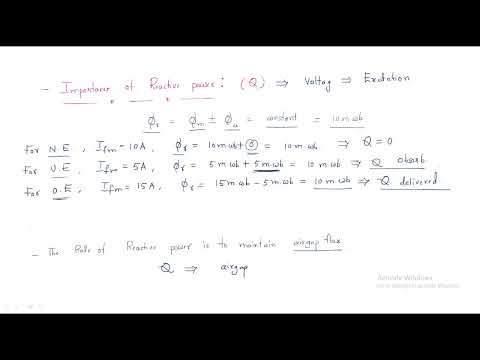 - Importance of Reactive power: (Q) ⇒ Voltag ⇒ Excitation
ϕr = ϕm ± ϕa = constant = 10 mwb
For N.E , Ifm = 10A , ϕr = 10mwb + 0 = 10 mwb ⇒ Q = 0
For U.E , Ifm = 5A , ϕr = 5 mwb + 5 mwb = 10 mwb ⇒ Q absorb
For O.E , Ifm = 15A , ϕr = 15 mwb - 5 mwb = 10 mwb ⇒ Q delivered
- The Role of Reactive power is to maintain airgap flux
Q ⇒ airgap
Activate Windows